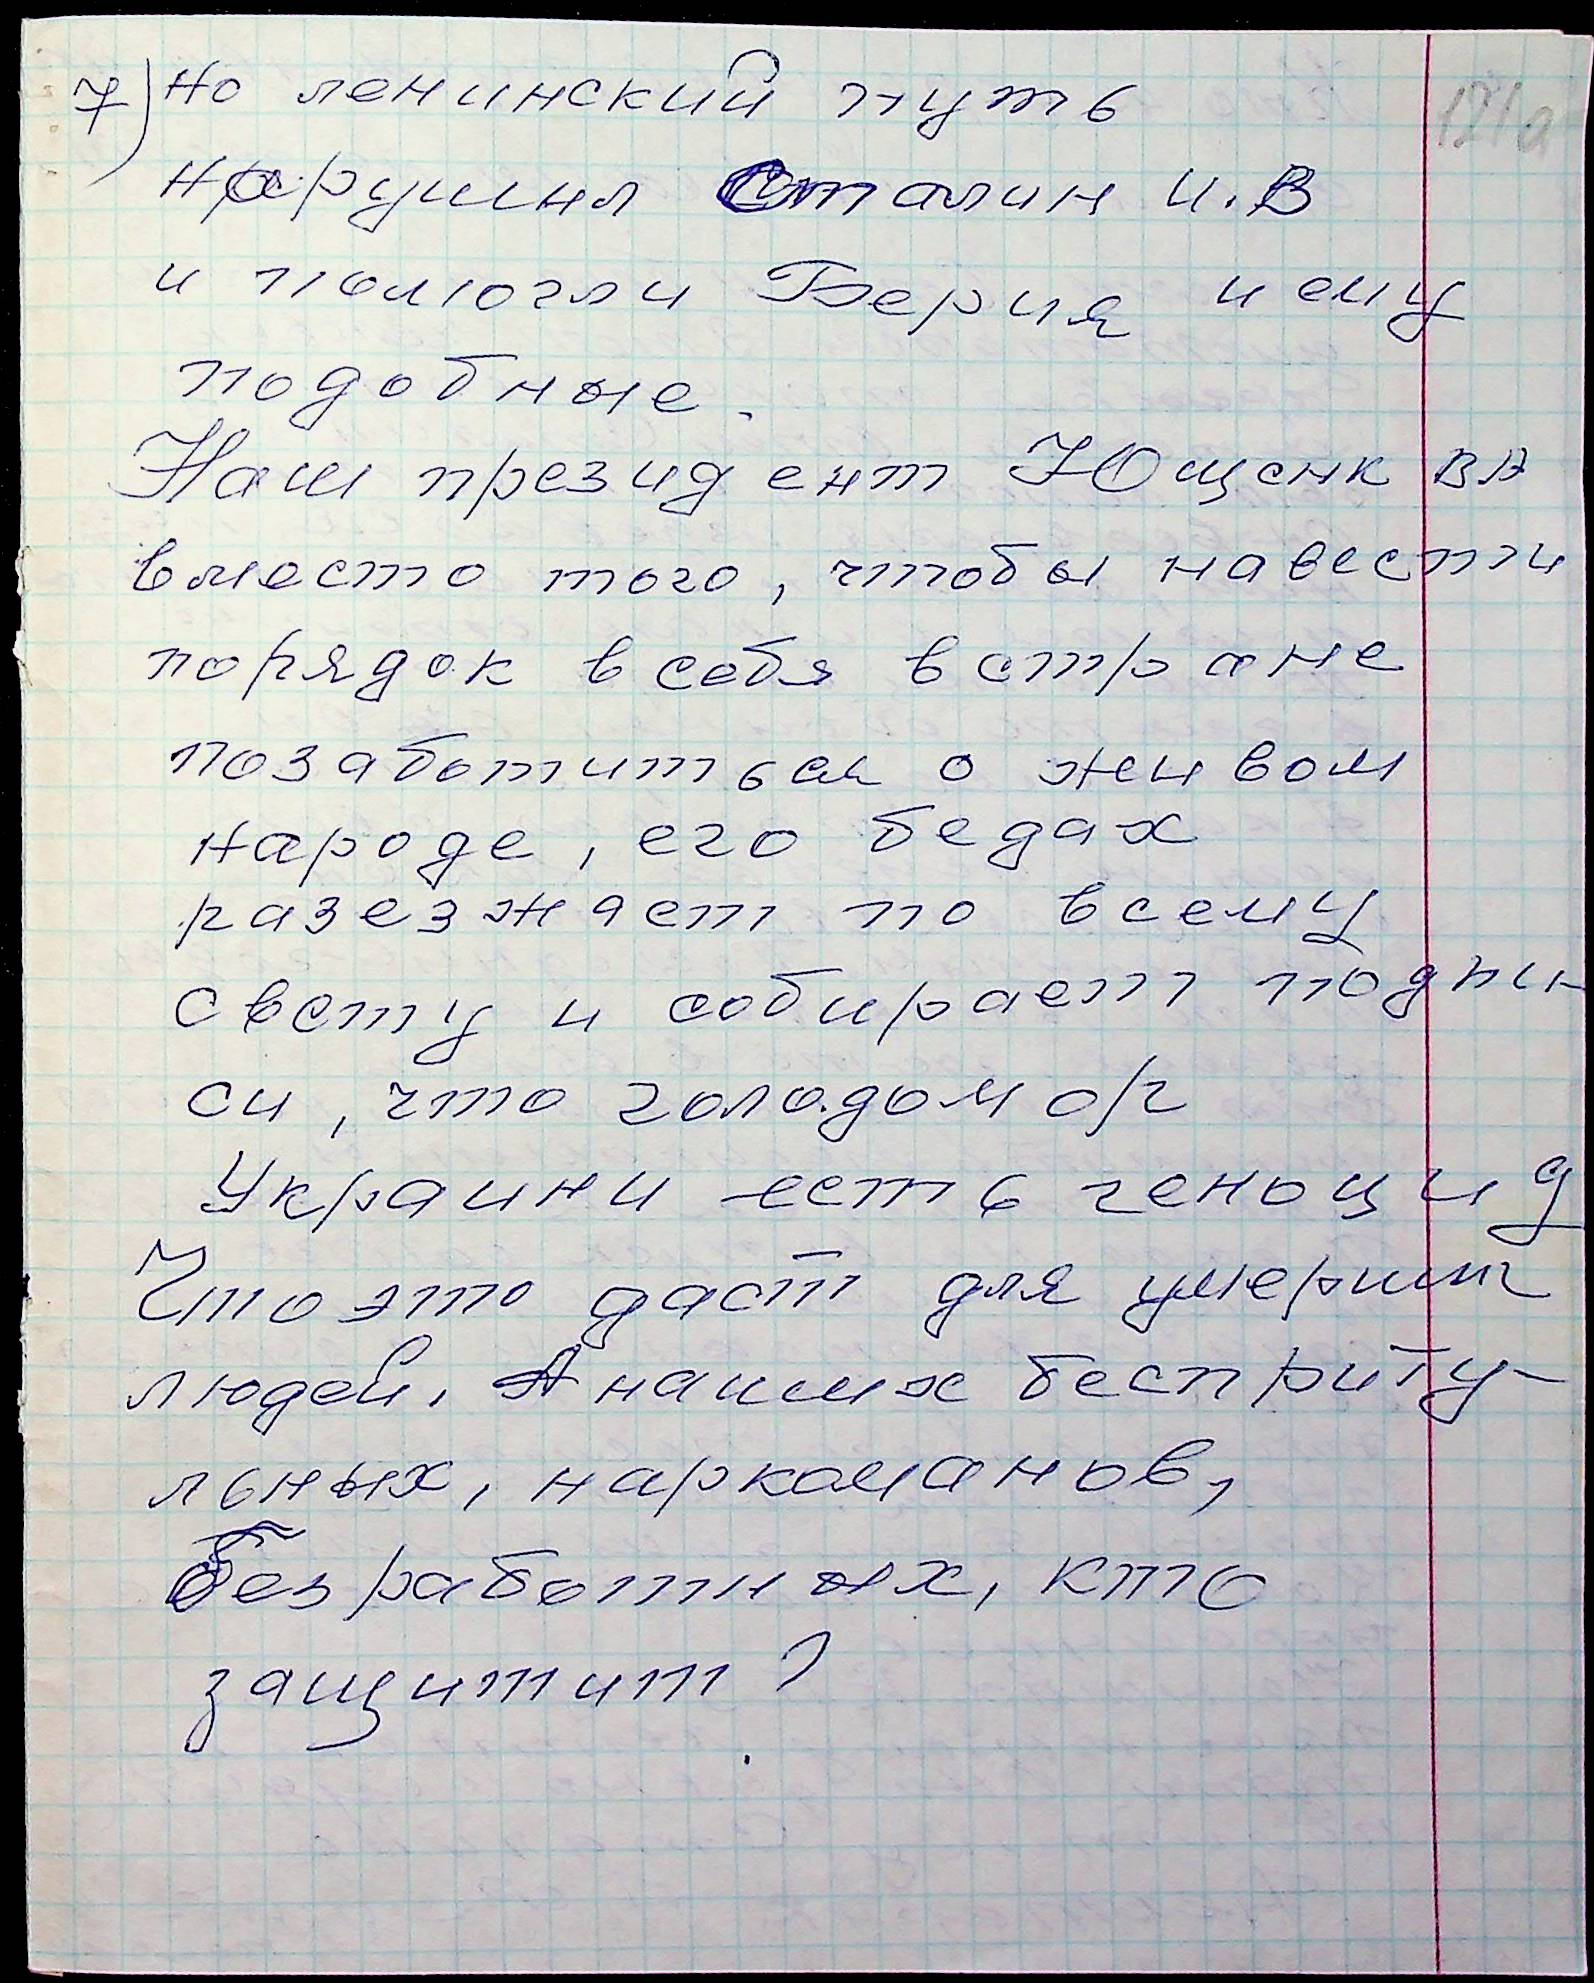 7) Но ленинский путь
121а
нарушил Сталин И.В
и помогли Берия и ему
подобные.
Наш президент Ющенк ВА
вместо того, чтобы навести
порядок в себя в стране
позаботиться о живом
народе, его бедах
разезжает по всему
свету и собирает подпи-
си, что голодомор
Украини есть геноцид
Что это даст для умерших
людей. А наших бесприту-
льных, наркоманов,
безработных, кто
защитит?